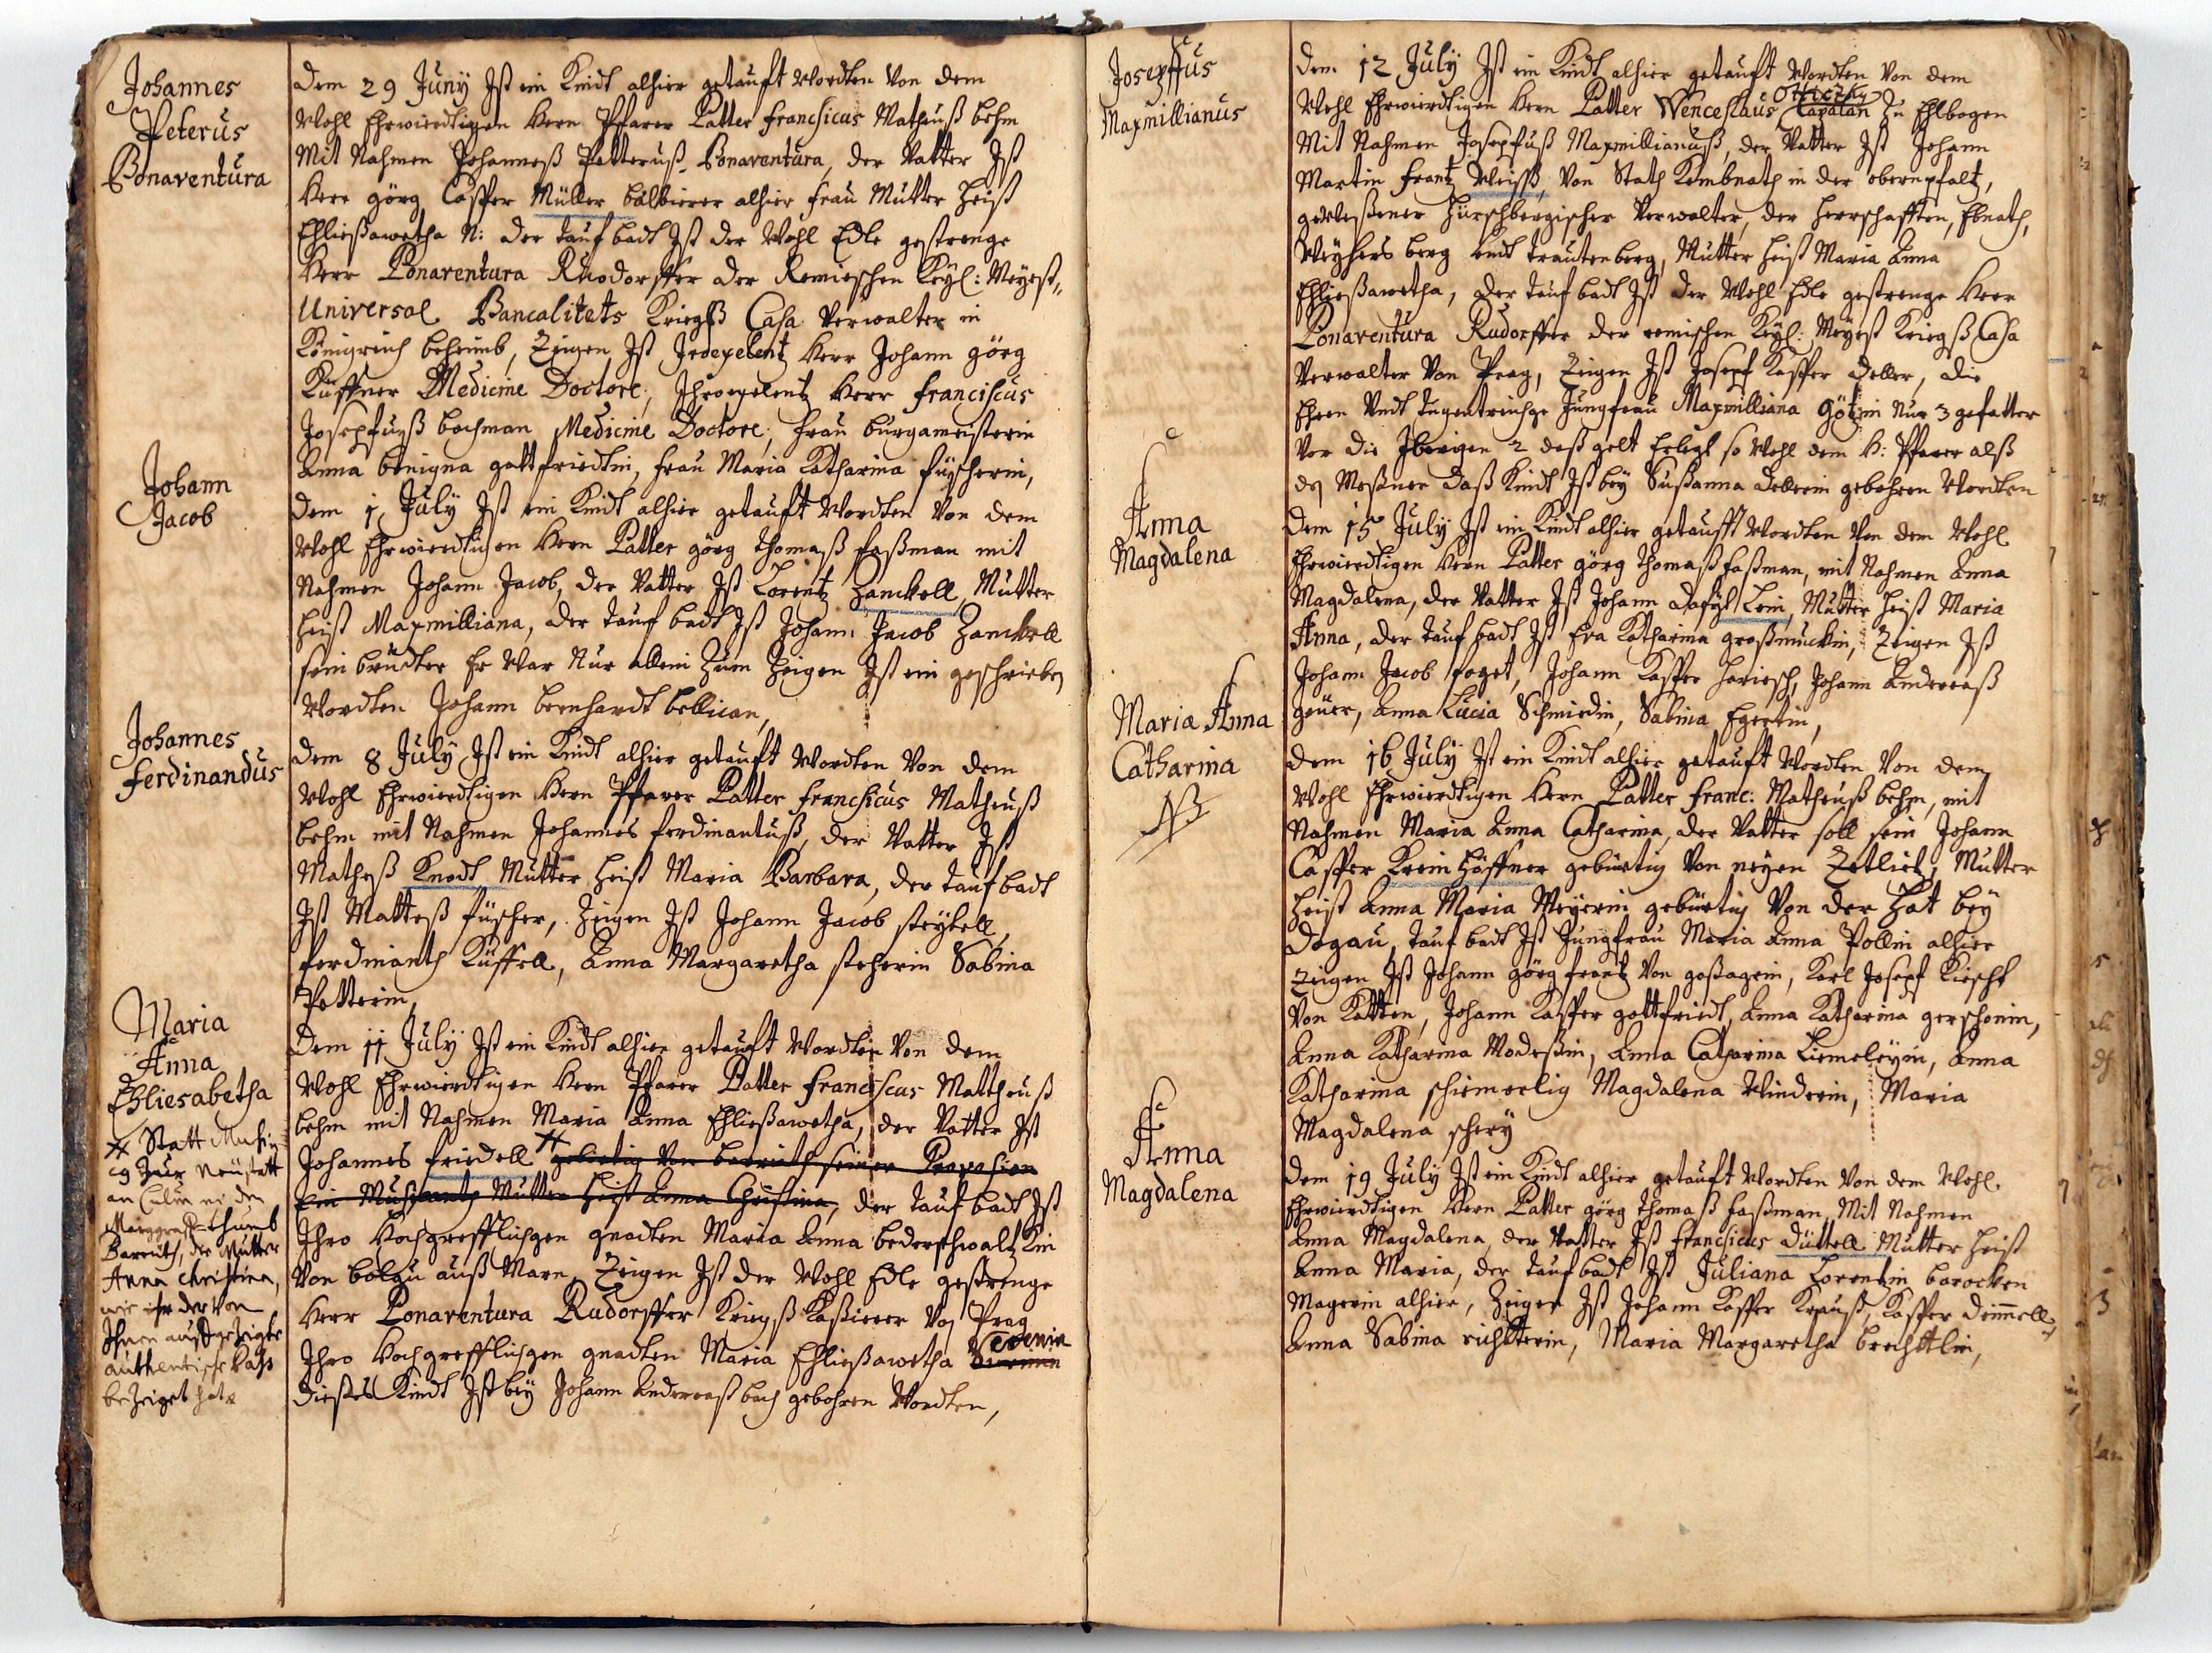 Johannes
Peterus
Bonaventura
Dem 29 Juny Ist ein Kindt alhier getauft Wordten Von dem
Wohl Ehrwierdtigen Hern Pfarer Patter francsicus Matheuß behm
Mit Nahmen Johanneß Petteruß Bonaventura, der Vatter Ist
Herr görg Casper Müller balbierer alhier frau Mutter heist
Ehliesawetha N: der tauf badt Ist der Wohl Edle gestrenge
Herr Bonaventura Rudorffer der Remieschen Keyl: Meyest„
Universal Bancalitets Kriegß Casa Verwalter in
Königreich beheimb, Zeigen Ist Herr Johann görg
Küffner Medicine Doctore, Herr franciscus
bachman Medicine Doctore, frau burgameisterin
Anna benigna gottfriedtin, frau Maria Katharina füscherin,
Johann
Jacob
Dem 1 July Ist ein Kindt alhier getauft Wordten Von dem
Wohl Ehrwierdtigen Hern Patter görg thomaß faßman mit
Nahmen Johann Jacob, der Vatter Ist Lorentz Zanckell, Mutter
heist Maxmilliana, der tauf badt Ist Johann Jacob Zanckell
sein bruder Er War Nur allein Zum Zeigen Ist ein geschrieben
Wordten Johann bernhardt bellican,
Johannes
ferdinandus
Dem 8 July Ist ein Kindt alhier getauft Wordten Von dem
Wohl Ehrwierdtigen Hern Pfarer Patter francsicus Matheuß
behm mit Nahmen Johannes ferdinantuß, der Vatter Ist
Matheß Knodt Mutter heist Maria Barbara, der tauf badt
Ist Mattheß füscher, Zeigen Ist Johann Jacob
ferdinanth Küffell, Anna Margaretha Sabina
Petterin,
Maria
Anna
Ehliesabetha
Dem 11 July Ist ein Kindt alhier getauft Wordten Von dem
Wohl Ehrwierdtigen Hern Pfarer Patter franciscus Mattheuß
behm mit Nahmen Maria Anna Ehließawetha, der Vatter Ist
Johannes friedell gebirtig Von barrieth seiner Profesion
Ein Musicanth Mutter heist Anna Christina, der tauf badt Ist
Ihro Hochgrefflichgen gnadten Maria Anna
Von auß Zeigen Ist der Wohl Edle gestrenge
Herr Bonaventura Rudorffer Kriegß Kaßierer Von Prag
Ihro Hochgrefflichgen gnadten Maria Ehließawetha
dießes Kindt Ist bey Johann Andereaß bach gebohren Wordten,
Statt
Neüstatt
an
Bareuth, die Mutter
Anna Christina,
wie ihr der Von
Ihnen
authentische
bezeiget hat
Josepffus
Maxmillianus
Dem 12 July Ist ein Kindt alhier getauft Wordten Von dem
Wohl Ehrwierdtigen Hern Patter Wenceslaus Capalan Zu Ehlbogen
Mit Nahmen Josepfuß Maxmillianuß, der Vatter Ist Johann
Martin frantz Von Stath Kembnath in der obernpfaltz,
geweßener Hürschbergischer Verwalter, der herrschafften, Ebnath,
Weyhers berg undt trautenberg, Mutter heist Maria Anna
Ehließawetha, der tauf badt Ist der Wohl Edle gestrenge Herr
Bonaventura Rudorffer der remischen Keyl: Meyest Kriegß Casa
Verwalter Von Prag, Zeigen Ist Josepf Kasper deller, die
Ehren Undt tugentreiche Jungfrau Maxmilliana götzin Nur 3 gefatter
Vor die Iberigen 2 daß gelt Erlegt so Wohl dem H: Pfarer alß
des Meßner daß Kindt Ist bey Sußanna dellerin gebohren Wordten
Anna
Magdalena
Dem 15 July Ist ein Kindt alhier getaufft Wordten Von dem Wohl
Ehrwierdtigen Hern Patter görg thomaß faßman, mit Nahmen Anna
Magdalena, der Vatter Ist Johann Lein, Mutter heist Maria
Anna, der tauf badt Ist Eva Katharina großmuckin, Zeigen Ist
Johann Jacob foget, Johann Kasper Johann Andereaß
geüer, Anna Lucia Schmiedin, Sabina Egertin,
Maria Anna
Catharina
NB
Dem 16 July Ist ein Kindt alhier getauft Wordten Von dem
Wohl Ehrwierdtigen Hern Patter Franc: Matheuß behm, mit
Nahmen Maria Anna Catharina, der Vatter soll sein Johann
Casper gebürtig Von neyen Zetlietz, Mutter
heist Anna Maria Meyerin gebürtig Von der Hat bey
Dogau, tauf badt Ist Jungfrau Maria Anna Pollin alhier
Zeigen Ist Johann görg frantz Von goßagrin, Karl Josepf
Von Katten, Johann Kasper gottfriedt, Anna Katharina gerschonin,
Anna Katharina Modeßin, Anna Catharina Anna
Katharina Magdalena Winderin, Maria
Magdalena
Anna
Magdalena
Dem 19 July Ist ein Kindt alhier getauft Wordten Von dem Wohl
Ehrwierdtigen Hern Patter görg thomaß faßman, Mit Nahmen
Anna Magdalena, der Vatter Ist francsicus Düttell Mutter heist
Anna Maria, der tauf badt Ist Juliana Lorentzin barocken
Magerin alhier, Zeigen Ist Johann Kasper Krauß, Kasper deimell,
Anna Sabina richtterin, Maria Margaretha brechttlin,